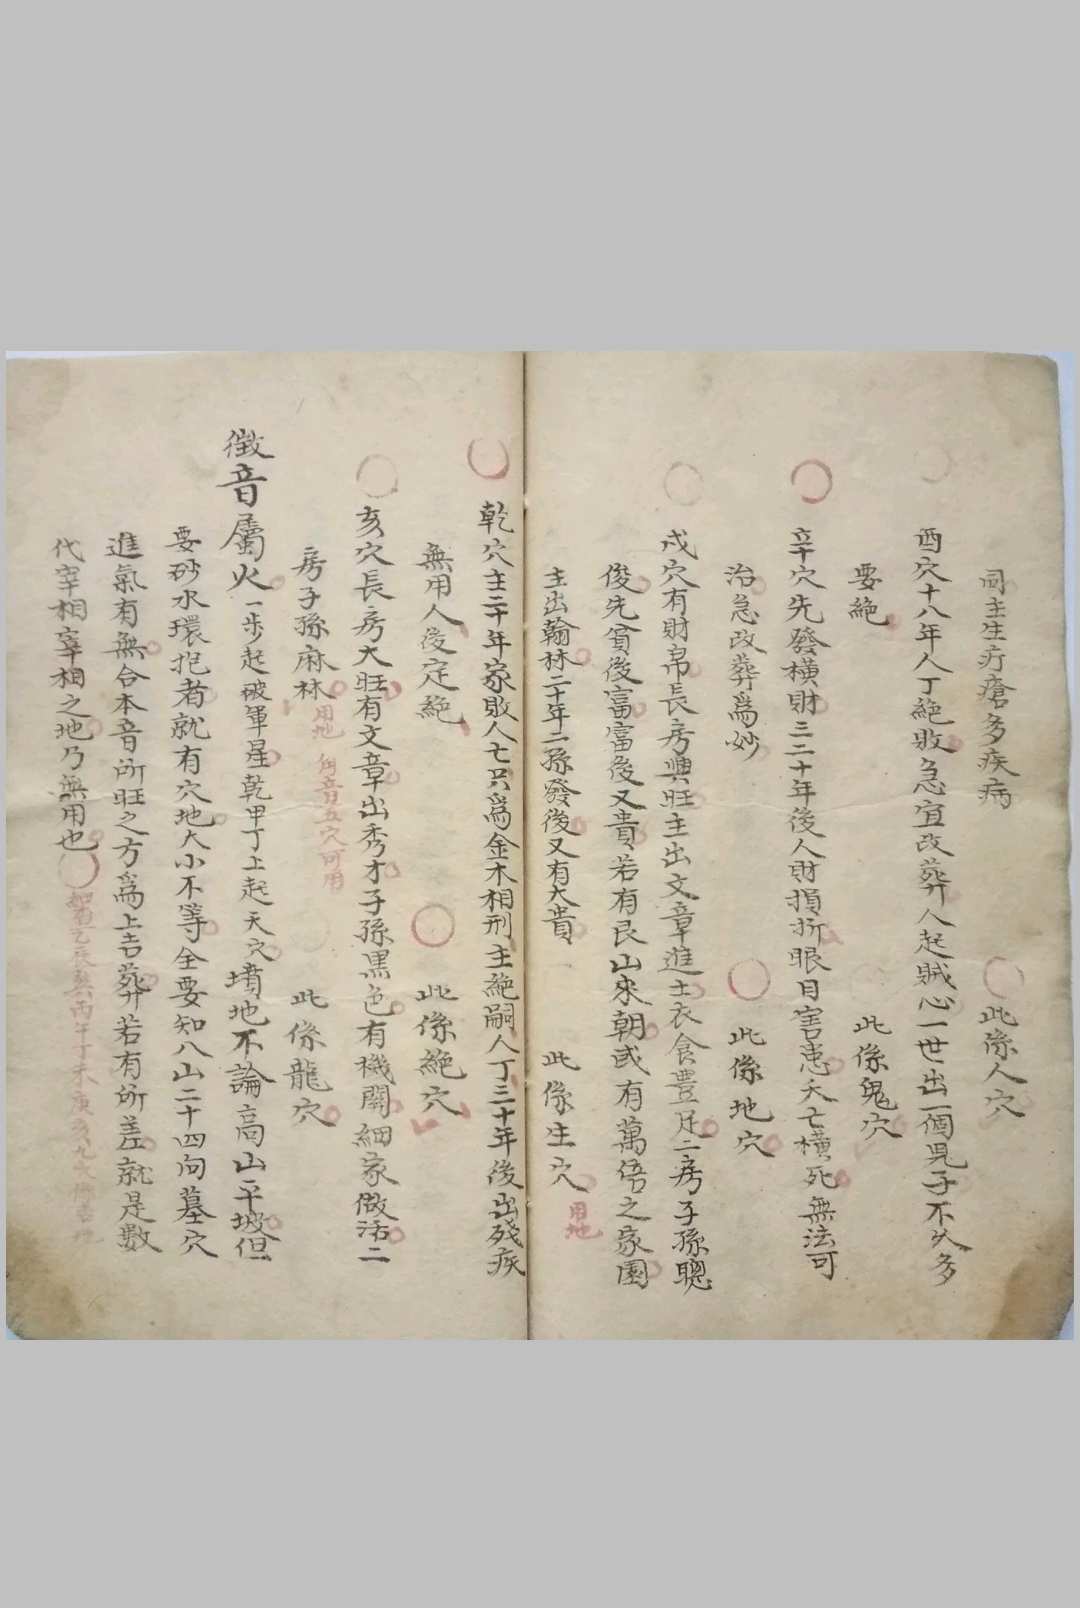 同主生疔瘡多疾病
此係人穴
酉穴十八年人丁絕敗急宜改葬人起賊心一世出一個児子不久多
要絕
此係鬼穴
辛穴先發橫財三二十年後人財損折眼目害患夭亡橫死無法可
治急改葬爲妙
此係地穴
戌穴有財帛長房興旺主出文章進士衣食豊足二房子孫聰
俊先貧後富富後又貴若有艮山來朝或有萬倍之家園
主出翰林二十年二孫發後又有大貴
此係生穴
用地
乾穴主二十年家敗人亡只爲金木相刑主絕嗣人丁三十年後出殘疾
無用人後定絕
此係絕穴
亥穴長房大旺有文章出秀才子孫黒色有機關細家做活二
房子孫麻林
用地
角音五穴可用
此係龍穴
徵音屬火一步起破軍星乾甲丁上起天穴墳地不論高山平坡但
要砂水環抱者就有穴地大小不等全要知八山二十四向墓穴
進氣有無合本音所旺之方爲上吉葬若有所差就是數
代宰相宰相之地乃無用也
乙辰巽丙午丁未庚亥九穴